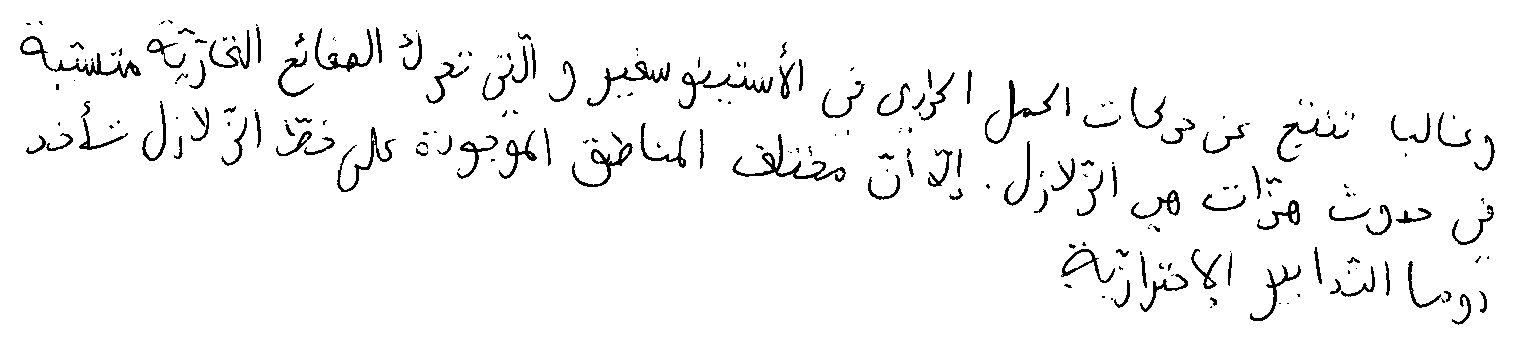 وغالبا تنتج عن حركات الحمل الحراري في الأستينوسفير و الّتي تحرك الصفائح القارّيّة متسببة
في حدوث هزّات هي الزّلازل. إلّا أنّ مختلف المناطق الموجودة على خطّ الزّلازل تأخذ
دوما التّدابير الإحترازيّة